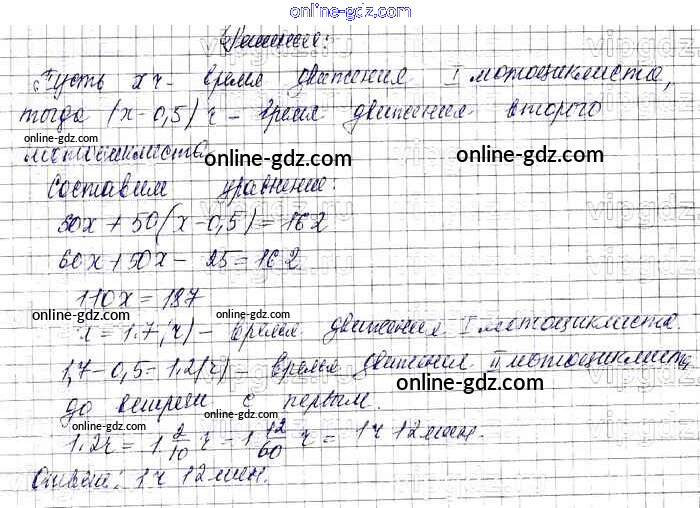 online-gdz.com
Решение:
Пусть x ч - время движения I мотоциклиста,
тогда (x-0,5) ч - время движения второго
online-gdz.com
мотоциклиста.
online-gdz.com
online-gdz.com
Составим уравнение:
60x+50(x-0,5)=162
online-gdz.com
60x+50x-25=162
110x=187
online-gdz.com
online-gdz.com
x=1,7(ч) - время движения I мотоциклиста.
1,7-0,5=1,2(ч) - время движения II мотоциклиста
online-gdz.com
до встречи с первым.
online-gdz.com
1,2ч = 1 2/10 ч = 1 12/60 ч = 1ч 12мин.
online-gdz.com
Ответ: 1ч 12мин.